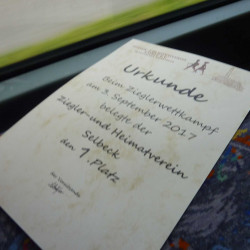 Urkunde
Beim Zieglerwettkampf
am 3. September 2017
belegte der
Ziegler-und Heimatverein
Selbeck
den 1. Platz